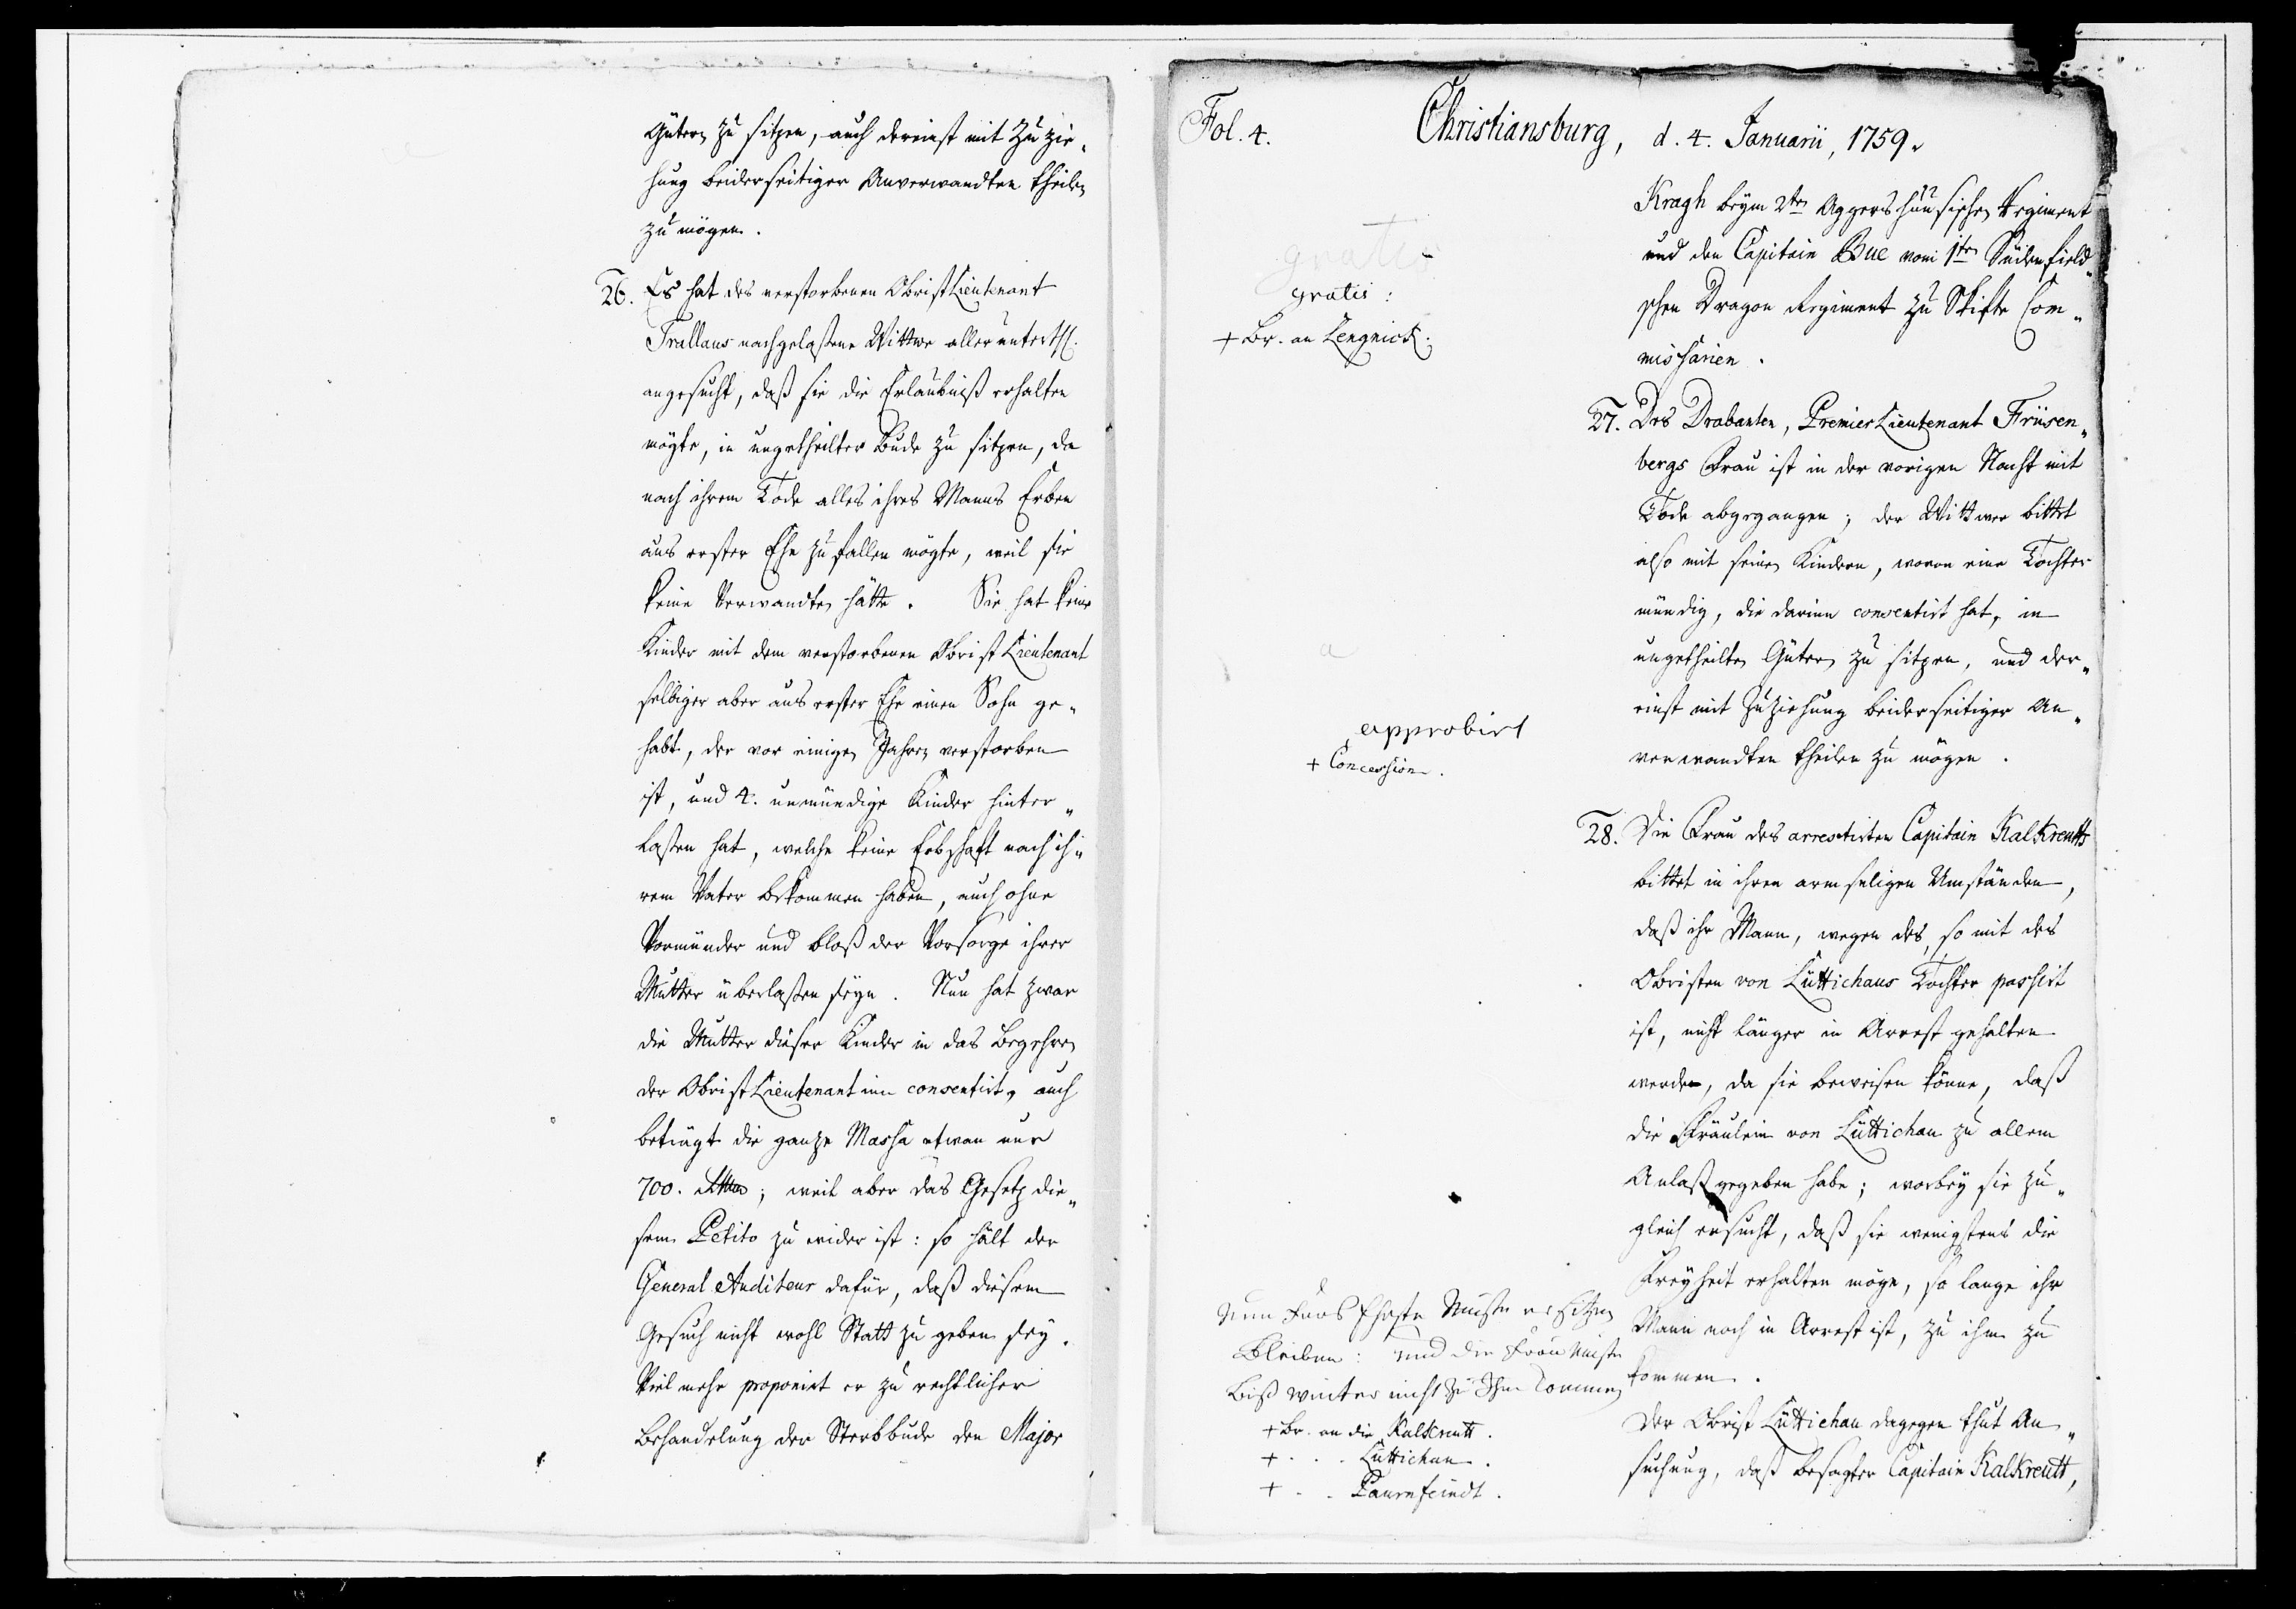 Gütern zu sitzen, auch dereinst mit Zuzie„
hung beiderseitiger Anverwandten theilen
zu mögen.
26. Es hat des verstorbenen ObristLieutenant
Trallaus nachgelaßene Wittwe allerunterth.
angesucht, daß sie die Erlaubniß erhalten
mögte, in ungetheilter Bude zu sitzen, da
nach ihrem Tode alles ihres Manns Erben
aus erster Ehe zufallen mögte, weil sie
keine Verwandten hätte. Sie hat keine
Kinder mit dem verstorbenen ObristLieutenant
selbiger aber aus erster Ehe einen Sohn ge„
habt, der vor einigen Jahren verstorben
ist, und 4. unmündige Kinder hinter„
laßen hat, welche keine Erbschaft nach ih„
rem Vater bekommen haben, auch ohne
Vormünder und bloß der Vorsorge ihrer
Mutter überlaßen seyn. Nun hat zwar
die Mutter dieser Kinder in das Begehren
der ObristLieutenantinn consentirt, auch
beträgt die ganze Massa etwan nur
700. ; weil aber das Gesetz die„
sem Petito zu wider ist: so hält der
General Auditeur dafür, daß diesem
Gesuch nicht wohl Statt zu geben sey.
Vielmehr proponirt er zu rechtlicher
Behandelung der Sterbbude den Major
Fol. 4. Christiansburg, d. 4. Januarii, 1759.
Kragh beym 2ten Aggershuusischen Regiment
und den Capitain Bue vom 1ten Südenfield„
schen Dragon Regiment zu Skifte Com„
missarien.
gratis
gratis:
+ Br. an Lengnick.
27. Des Drabanten, PremierLieutenant Friisen„
bergs Frau ist in der vorigen Nacht mit
Tode abgegangen; der Wittwer bittet
also mit seinen Kindern, wovon eine Tochter
mündig, die darinn consentirt hat, in
ungetheilten Gütern zu sitzen, und der„
einst mit Zuziehung beiderseitiger An„
verwandten theilen zu mögen.
a
approbirt
+ Concession.
28. Die Frau des arrestirten Capitain Kalkreutts
bittet in ihren armseligen Umständen,
daß ihr Mann, wegen des, so mit des
Obristen von Lüttichaus Tochter passirt
ist, nicht länger in Arrest gehalten
werden, da sie beweisen könne, daß
die Fräulein von Lüttichau zu allem
Anlaß gegeben habe; worbey sie zu„
gleich ersucht, daß sie wenigstens die
Freyheit erhalten möge, so lange ihr
Mann noch in Arrest ist, zu ihm zu
kommen.
Der Obrist Lüttichau dagegen thut An„
suchung, daß besagter Capitain Kalkreutt,
Nun fürs Ehrste Muste er sitzen
Bleiben: und die Frau Muste
Biß weiter nicht zu Ihm Kommen
+ Br. an die Kalkreutt.
+ . . . Lüttichau.
+ . . Paurnfeindt.